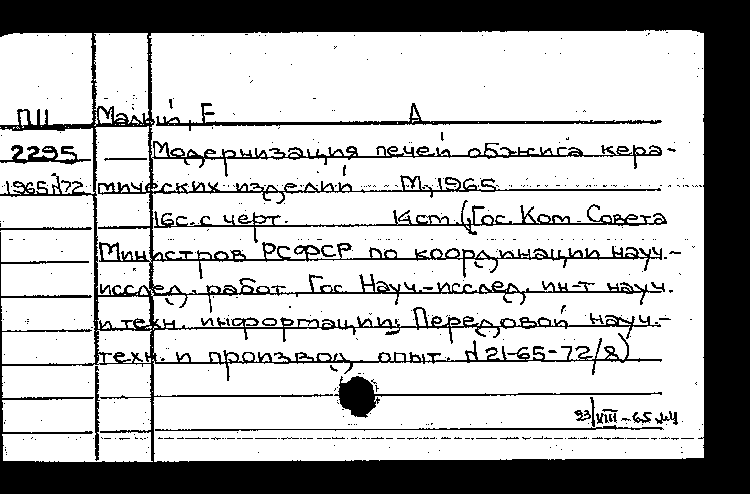 П11 Малый, Е А
2295 Модернизация печей обжига кера-
1965 №72 мических изделий. М, 1965
16с. с черт. 14см. (Гос. Ком. Совета
Министров РСФСР по координации науч.-
исслед. работ. Гос. Науч.-исслед. ин-т науч.
и техн. информации; Передовой науч.-
техн. и производ. опыт. №21-65-72/8)
23/VIII-65